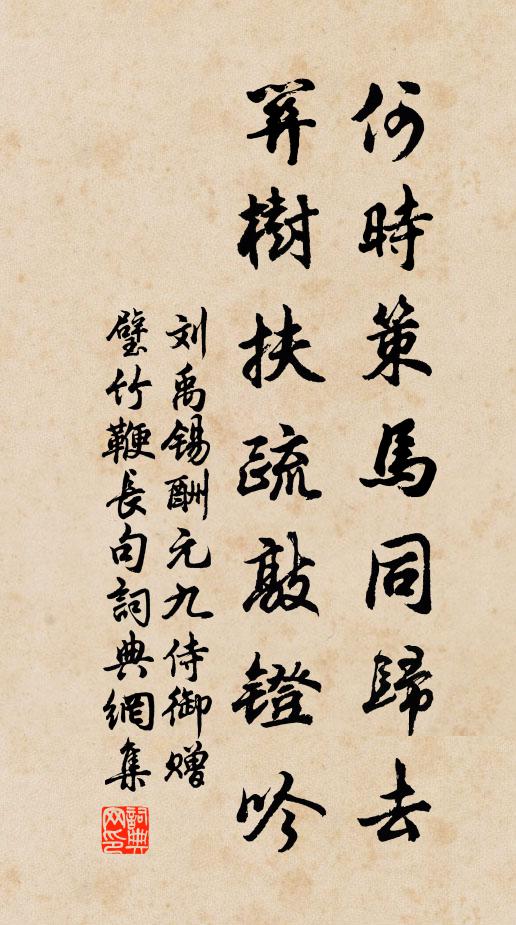 何時策馬同歸去
關樹扶疏敲鐙吟
刘禹锡酬元九侍御赠
璧竹鞭長句詞典網集
詞典
网印